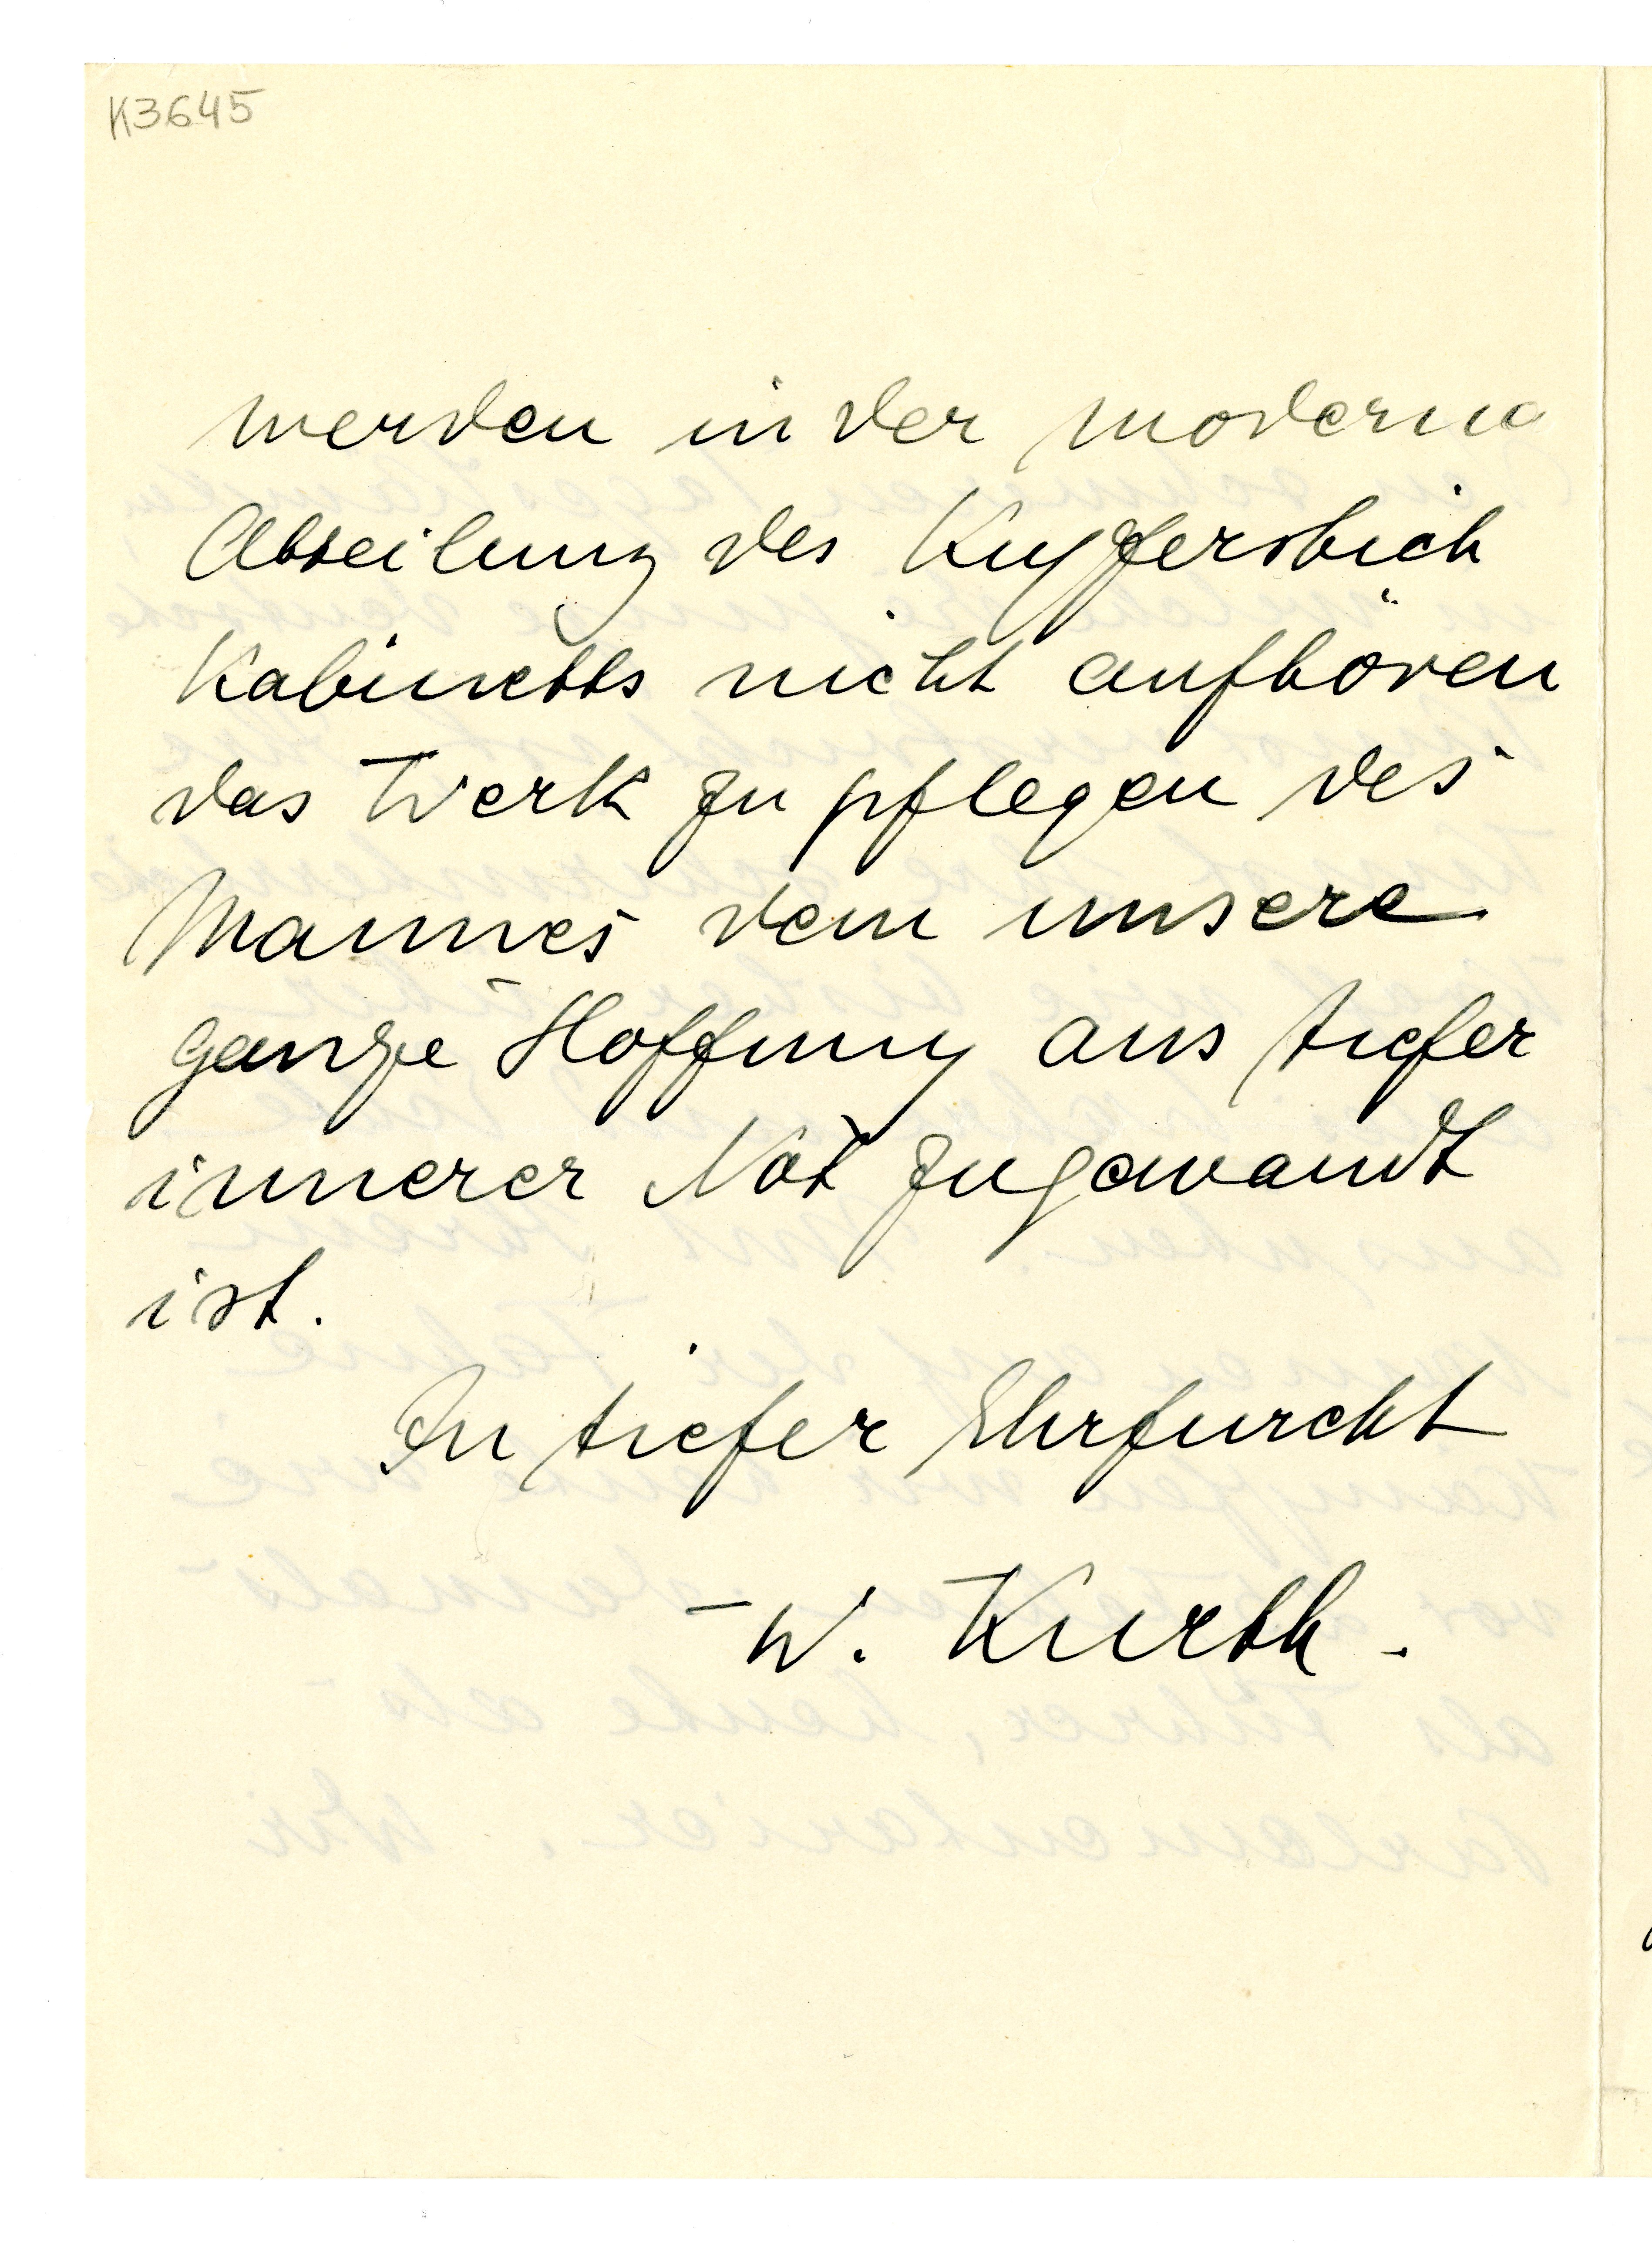 K3645
werden in der moderne
Abteilung des Kupferstich
Kabinetts nicht aufhören
das Werk zu pflegen des
Mannes dem unsere
ganze Hoffnung aus tiefer
innerer Not zugewandt
ist.
In tiefer Ehrfurcht
W. Kurth.